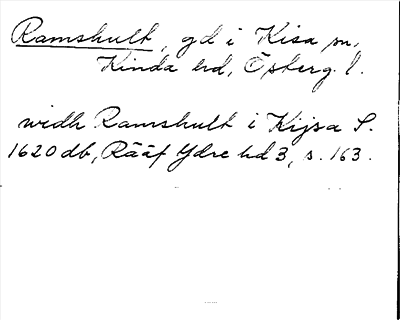 Ramshult, gd i Kisa sn,
Kinda hd, Österg. l.
widh Ramshult i Kijsa S.
1620 db, Rääf Ydre hd 3, s. 163.